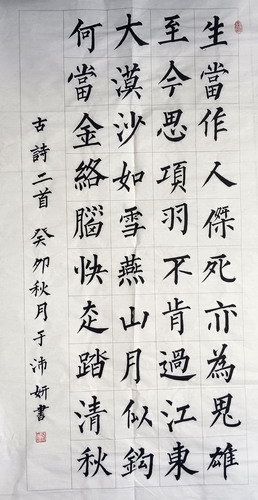 生當作人傑死亦為鬼雄
至今思項羽不肯過江東
大漠沙如雪燕山月似鈎
何當金絡腦快走踏清秋
古詩二首 癸卯秋月于沛妍書